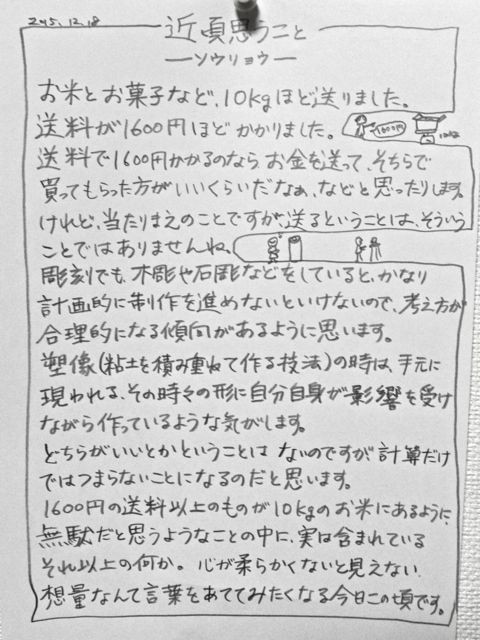 2015.12.18
近頃思うこと
ーソウリョウー
お米とお菓子など、10kgほど送りました。
送料が1600円ほどかかりました。
1600円
10kg
送料で1600円かかるのなら お金を送って、そちらで
買ってもらった方がいいくらいだなぁ、などと思ったりします。
けれど、当たりまえのことですが、送るということは、そういう
ことではありませんね。
彫刻でも、木彫や石彫などをしていると、かなり
計画的に制作を進めないといけないので、考え方が
合理的になる傾向があるように思います。
塑像(粘土を積み重ねて作る技法)の時は、手元に
現われる、その時々の形に自分自身が影響を受け
ながら作っているような気がします。
どちらがいいとかということは ないのですが 計算だけ
ではつまらないことになるのだと思います。
1600円の送料以上のものが10kgのお米にあるように、
無駄だと思うようなことの中に、実は含まれている
それ以上の何か。心が柔らかくないと見えない、
想量なんて言葉をあててみたくなる今日この頃です。